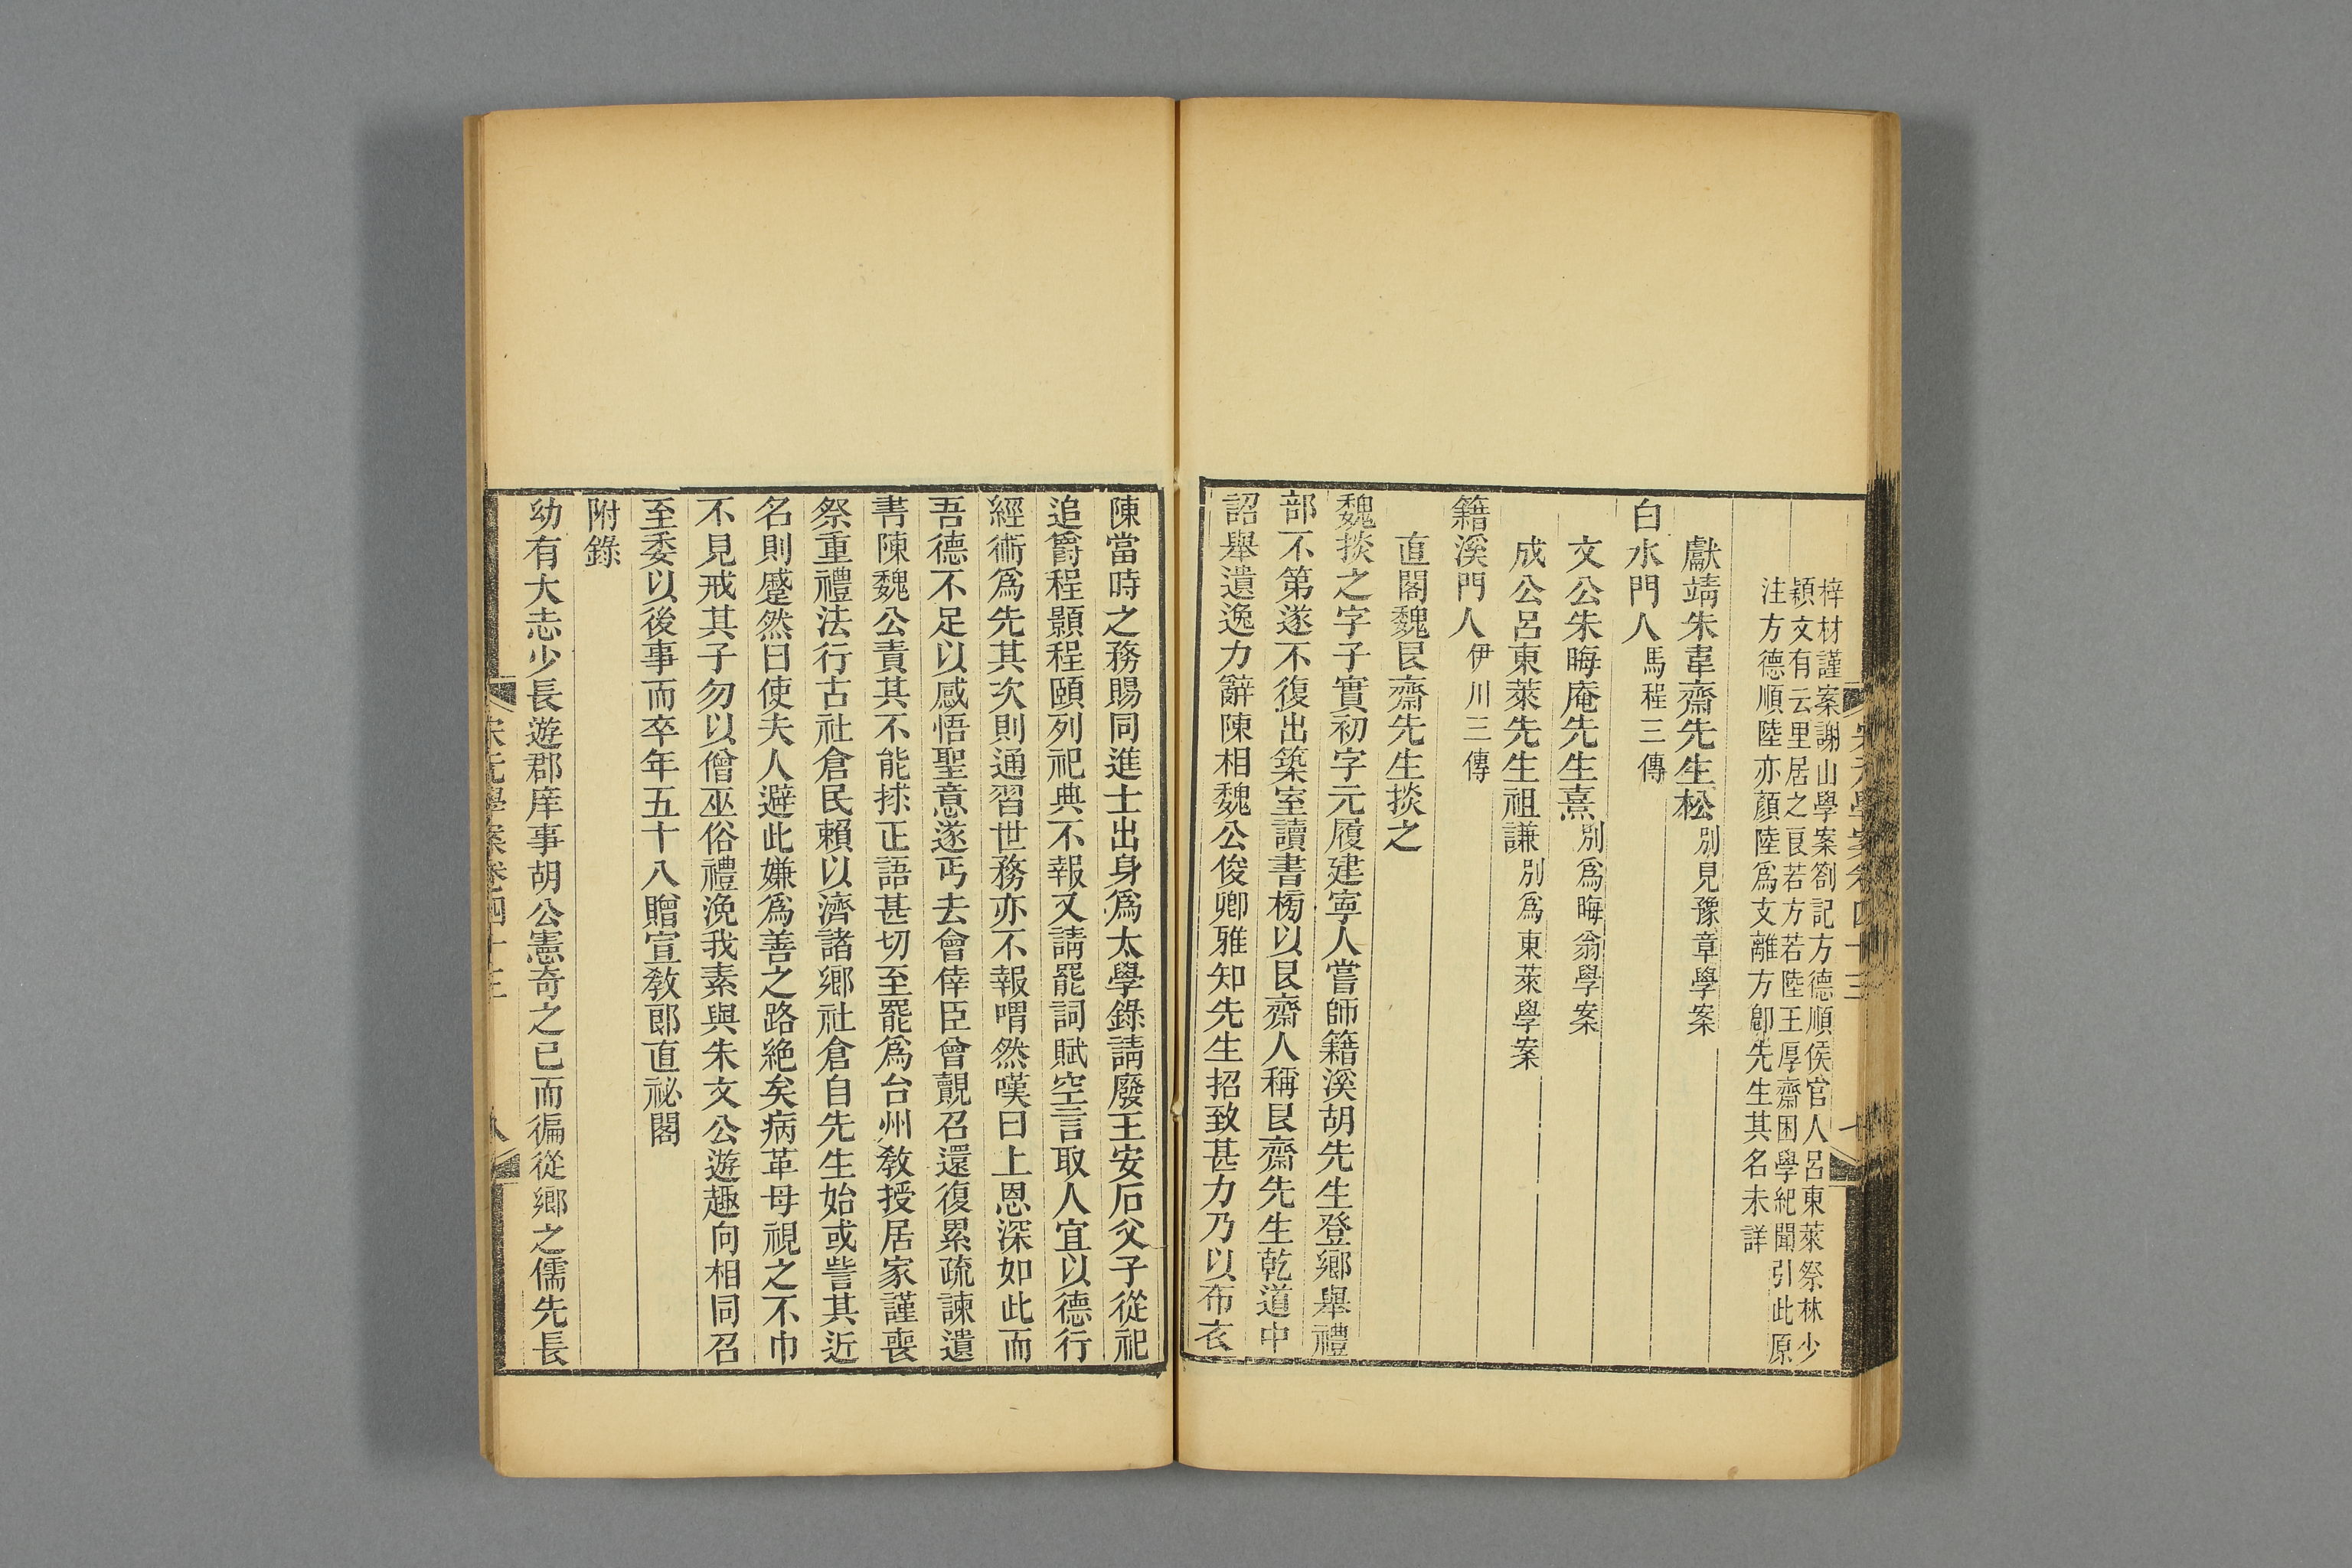 宋元學案卷四十三
七
梓材謹案謝山學案劄記方德順侯官人呂東萊祭林少
穎文有云里居之良若方若陸王厚齋困學紀聞引此原
注方德順陸亦顏陸爲支離方卽先生其名未詳
獻靖朱韋齋先生松別見豫章學案
白水門人馬程三傳
文公朱晦庵先生熹別爲晦翁學案
成公呂東萊先生祖謙別爲東萊學案
籍溪門人伊川三傳
直閣魏艮齋先生掞之
魏掞之字子實初字元履建寧人嘗師籍溪胡先生登鄉舉禮
部不第遂不復出築室讀書榜以艮齋人稱艮齋先生乾道中
詔舉遺逸力辭陳相魏公俊卿雅知先生招致甚力乃以布衣
陳當時之務賜同進士出身爲太學錄請廢王安石父子從祀
追爵程顥程頤列祀典不報又請罷詞賦空言取人宜以德行
經術爲先其次則通習世務亦不報喟然嘆曰上恩深如此而
吾德不足以感悟聖意遂丐去會倖臣曾覿召還復累疏諫遺
書陳魏公責其不能捄正語甚切至罷爲台州敎授居家謹喪
祭重禮法行古社倉民賴以濟諸鄉社倉自先生始或訾其近
名則蹙然曰使夫人避此嫌爲善之路絶矣病革母視之不巾
不見戒其子勿以僧巫俗禮浼我素與朱文公遊趣向相同召
至委以後事而卒年五十八贈宣敎郎直祕閣
附錄
幼有大志少長遊郡庠事胡公憲奇之已而徧從鄉之儒先長
宋元學案卷四十三
八